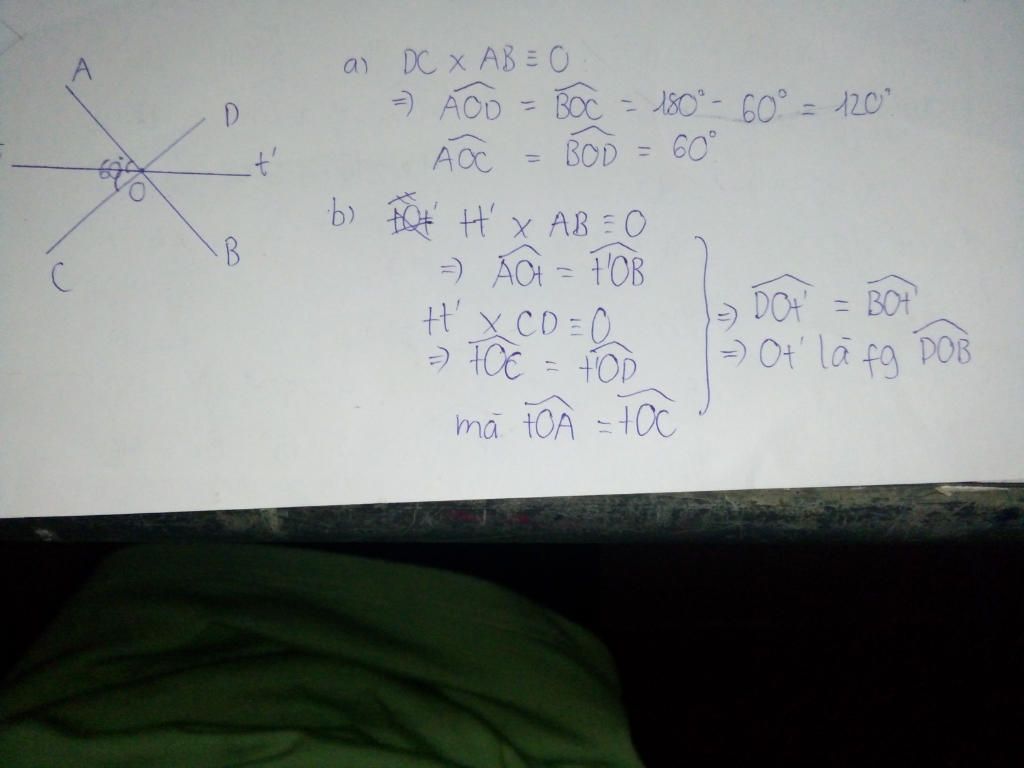 A
D
60°
t'
O
C
B
a) DC x AB ≡ O
=> AOD = BOC = 180° - 60° = 120°
AOC = BOD = 60°
b) tOt' tt' x AB ≡ O
=> AOt = t'OB
tt' x CD ≡ O
=> tOC = t'OD
mà tOA = tOC
=> DOt' = BOt'
=> Ot' là fg DOB